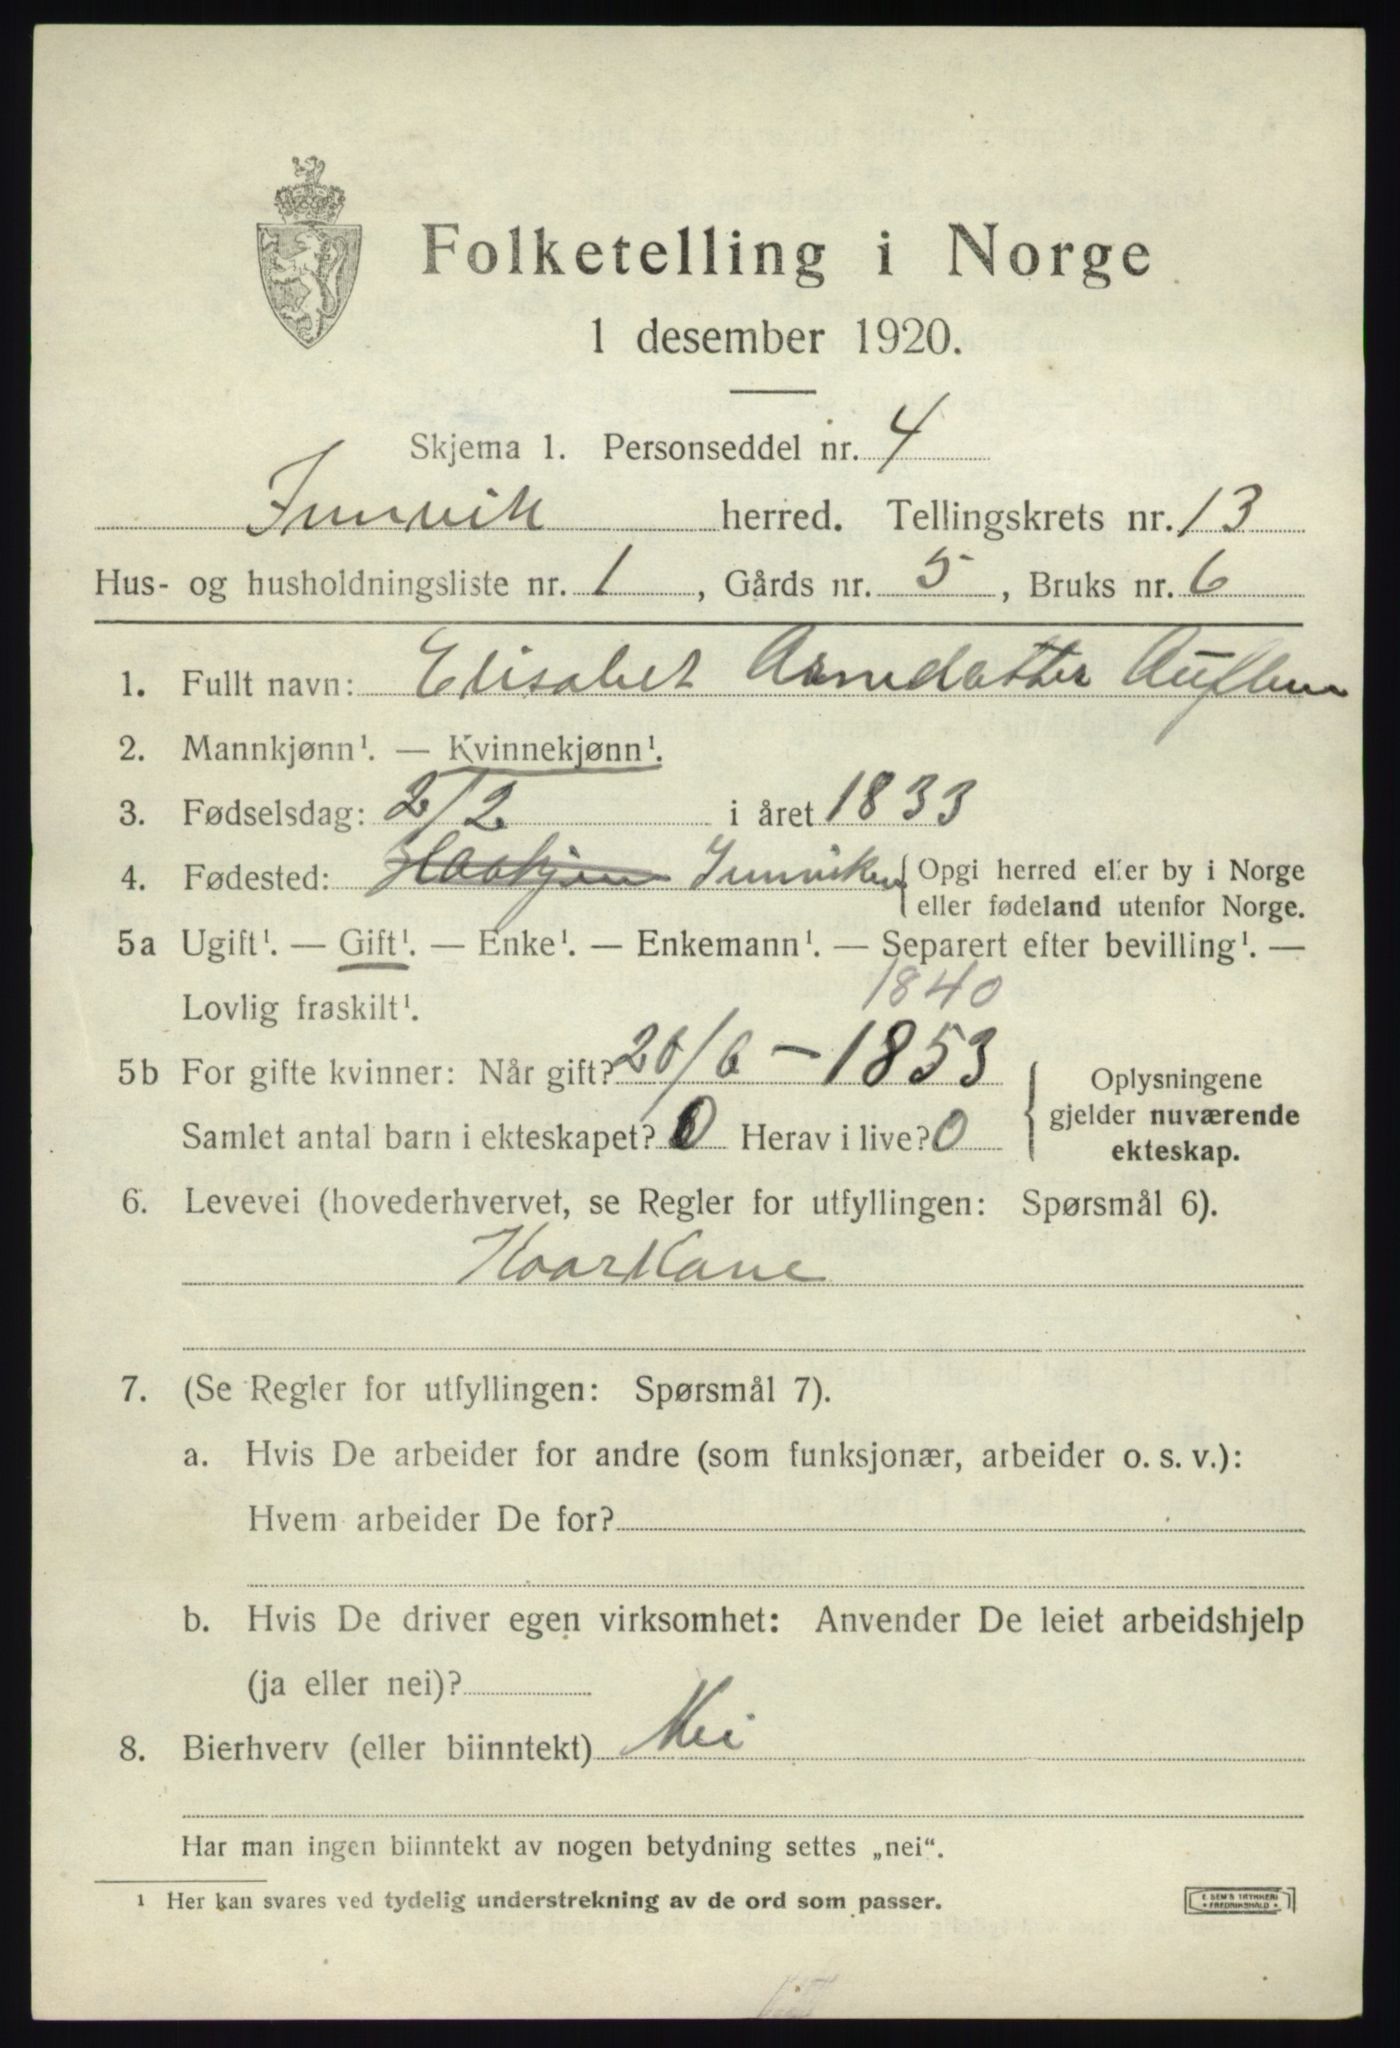 Folketelling i Norge
1 desember 1920.
Skjema 1. Personseddel nr. 4
Innvik herred. Tellingskrets nr. 13
Hus- og husholdningsliste nr. 1, Gårds nr. 5, Bruks nr. 6
1. Fullt navn: Elisabet Arnedatter Auflem
2. Mannkjønn¹. — Kvinnekjønn¹.
3. Fødselsdag: 2/2 i året 1833
4. Fødested: Innviken { Opgi herred eller by i Norge
eller fødeland utenfor Norge.
5a Ugift¹. — Gift¹. — Enke¹. — Enkemann¹. — Separert efter bevilling¹. —
Lovlig fraskilt¹.
1840
5b For gifte kvinner: Når gift? 26/6 – 1853
Samlet antal barn i ekteskapet? 0 Herav i live? 0
{ Oplysningene
gjelder nuværende
ekteskap.
6. Levevei (hovederhvervet, se Regler for utfyllingen: Spørsmål 6).
Kaarkane
7. (Se Regler for utfyllingen: Spørsmål 7).
a. Hvis De arbeider for andre (som funksjonær, arbeider o. s. v.):
Hvem arbeider De for?
b. Hvis De driver egen virksomhet: Anvender De leiet arbeidshjelp
(ja eller nei)?
8. Bierhverv (eller biinntekt) Nei
Har man ingen biinntekt av nogen betydning settes „nei“.
¹ Her kan svares ved tydelig understrekning av de ord som passer.
E. SEM'S TRYKKERI
FREDRIKSHALD